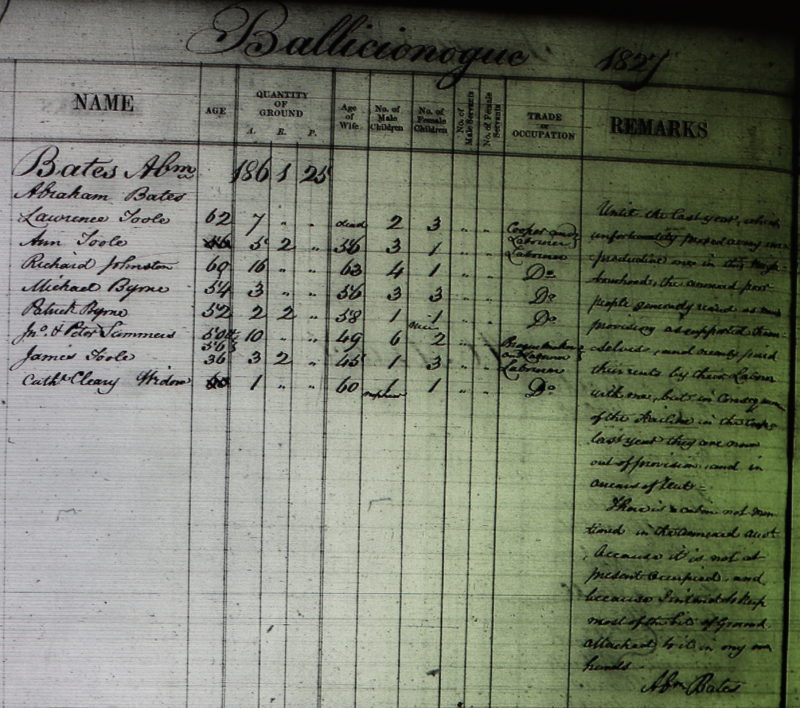 Ballicionogue 1827
NAME AGE QUANTITY OF GROUND A. R. P. Age of Wife No. of Male Children No. of Female Children No. of Male Servants No. of Female Servants TRADE or OCCUPATION REMARKS
Bates Abm 186 1 25
Abraham Bates
Lawrence Toole 62 7 " " dead 2 3 " " Cooper and Labourer
Ann Toole 5 2 " 56 3 1 " " Labourer
Richard Johnston 60 16 " " 63 4 1 " " Do
Michael Byrne 54 3 " " 56 3 3 " " Do
Patrick Byrne 52 2 2 " 58 1 1 " " Do
Jno. & Peter Summers 56 10 " " 49 6 2 " " and Labourer
James Toole 36 3 2 " 45 1 3 " " Labourer
Cathe Cleary Widow 1 " " 60 nephew 1 1 " " Do
Until the last year, which
unfortunately proved a very un
productive one in this neigh
bourhood, the annexed poor
people generally raised as much
provision as supported them
selves, and mostly paid
their rents by their Labour
with me, but in Consequence
of the Failure in the Crops
last year they are now
out of provision, and in
arrears of Rent =
There is a cabin not men
tioned in the annexed
because it is not at
present occupied, and
because I intend to keep
most of the bit of Ground
attached to it in my own
hands
Abm Bates